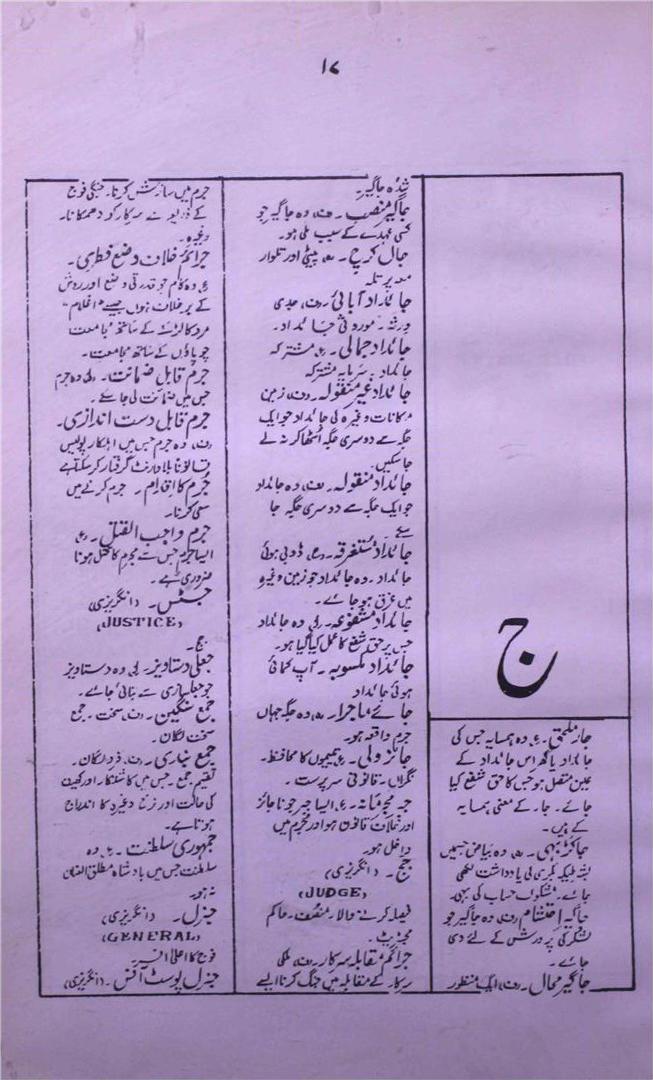 ۱۷
ج
جار ملحق۔ ع، وہ ہمسایہ جس کی
جائداد یا گھر اس جائداد کے
عین متصل ہو جس کا حق شفع کیا
جائے۔ جار کے معنی ہمسایہ
کے ہیں۔
جاکڑ بہی۔ ھ، وہ بیاض جسمیں
بشرطیکہ بکری کی یادداشت لکھی
جائے۔ مشکوک حساب کی بہی۔
جاگیر احتشام (ف) وہ جاگیر جو
لشکر کی پرورش کے لئے دی
جائے۔
جاگیر محال۔ (ف) ایک منظور
شدہ جاگیر۔
جاگیر منصب۔ (ف) وہ جاگیر جو
کسی عہدے کے سبب ملی ہو۔
جال کرچ۔ ھ، پیٹی اور تلوار
معہ پرتلہ
جائداد آبائی۔ (ف) جدی
ورثہ۔ موروثی جائداد۔
جائداد جمالی۔ ع، مشترکہ
جائداد۔ سرمایہ مشترکہ
جائداد غیر منقولہ۔ (ف) زمین
مکانات وغیرہ کی جائداد جو ایک
جگہ سے دوسری جگہ اُٹھا کر نہ لے
جا سکیں۔
جائداد منقولہ۔ (ف) وہ جائداد
جو ایک جگہ سے دوسری جگہ جا
سکے۔
جائداد مستغرقہ۔ (ع) ڈوبی ہوئی
جائداد۔ وہ جائداد جو زمین وغیرہ
میں غرق ہو جائے۔
جائداد مشفوعہ۔ (ع) وہ جائداد
جس پر حق شفع کا عمل کیا گیا ہو۔
جائداد مکسوبہ۔ آپ کمائی
ہوئی جائداد
جائے ماجرا۔ (ف) وہ جگہ جہاں
جرم واقعہ ہو۔
جائز ولی۔ ع، یتیموں کا محافظ۔
نگراں۔ قانونی سرپرست۔
جبر مجرمانہ۔ ع، ایسا جبر جو ناجائز
اور خلاف قانون ہو اور مجرم میں
داخل ہو۔
جج۔ (انگریزی)
(JUDGE)
فیصلہ کرنے والا۔ منصف۔ حاکم
مجوزیٹ۔
جرائم مقابلہ سرکار۔ (ف) ملکی
سرکار کے مقابلہ میں جنگ کرنا ایسے
جرم میں سازش کرنا۔ جنگی فوج
کے ذریعہ سے سرکار کو دھمکانا۔
وغیرہ۔
جرائم خلاف وضع فطری۔
ع، وہ کام جو قدرتی وضع اور روش
کے برخلاف ہوں جیسے "اغلام"
مرد کا لڑکے کے ساتھ مجامعت
چوپاؤں کے ساتھ مجامعت۔
جرم قابل ضمانت۔ (ع) وہ جرم
جس میں ضمانت لی جا سکے۔
جرم قابل دست اندازی۔
(ف) وہ جرم جس میں اہلکار پولیس
قانوناً بلا وارنٹ گرفتار کر سکتا ہے
جُرم کا اقدام۔ جرم کرنے میں
سعی کرنا۔
جرم واجب القتل۔ (ع)
ایسا جرم جس سے مجرم کا قتل ہونا
ضروری ہے۔
جسٹس۔ (انگریزی)
(JUSTICE)
جج۔
جعلی دستاویز۔ (ع) وہ دستاویز
جو جعلسازی سے بنائی جائے۔
جمع سنگین۔ (ف) سخت۔ جمع
سخت لگان۔
جمع نیاری۔ (ف) فرد لگان۔
تقسیم جمع۔ جس میں کاشتکار اور کھیت
کی حالت اور نرخ وغیرہ کا اندراج
ہوتا ہے۔
جمہوری سلطنت۔ ع، وہ
سلطنت جس میں بادشاہ مطلق العنان
نہ ہو۔
جنرل۔ (انگریزی)
(GENERAL)
فوج کا اعلیٰ افسر۔
جنرل پوسٹ آفس۔ (انگریزی)